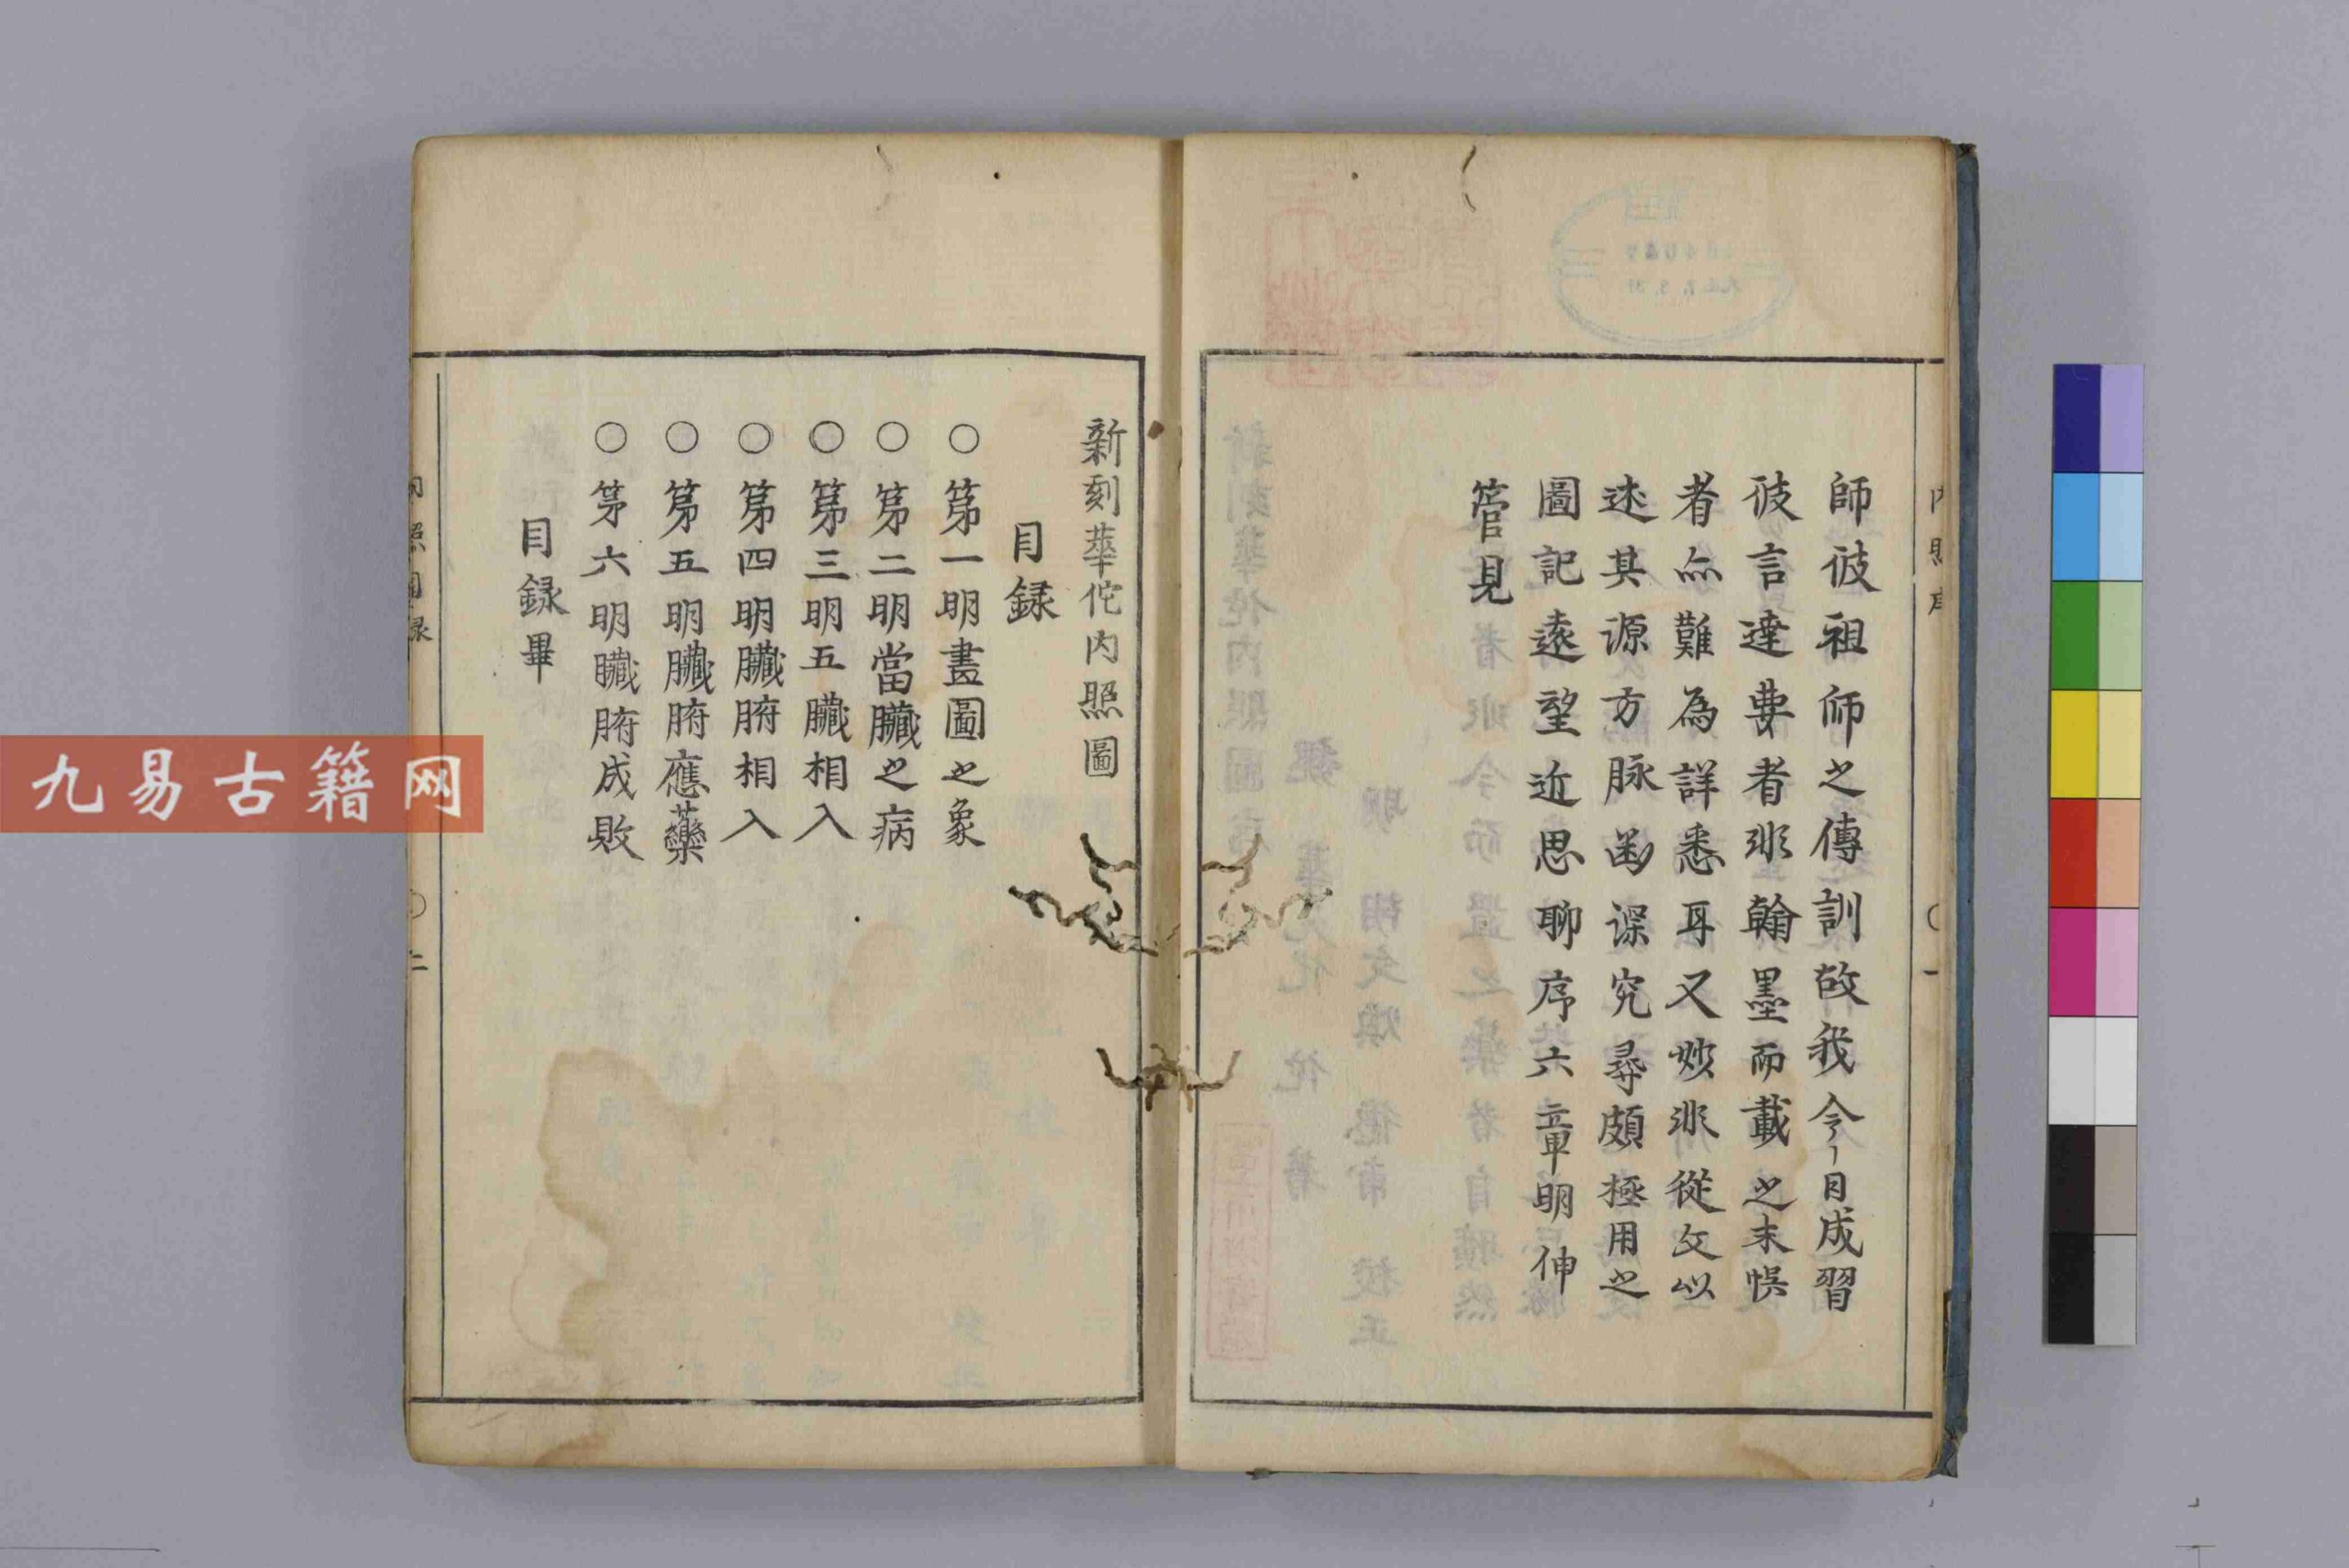 師彼祖師之傳訓故我今日成習
彼言達要者非翰墨而載之未悮
者亦難為詳悉耳又妙非從文以
述其源方脉幽深究尋頗極用之
圖記遠望近思聊序六章明伸
管見
新刻華佗内照圖
目録
○第一明畫圖之象
○第二明當臟之病
○第三明五臟相入
○第四明臟腑相入
○第五明臟腑應藥
○第六明臟腑成敗
目録畢
九易古籍网